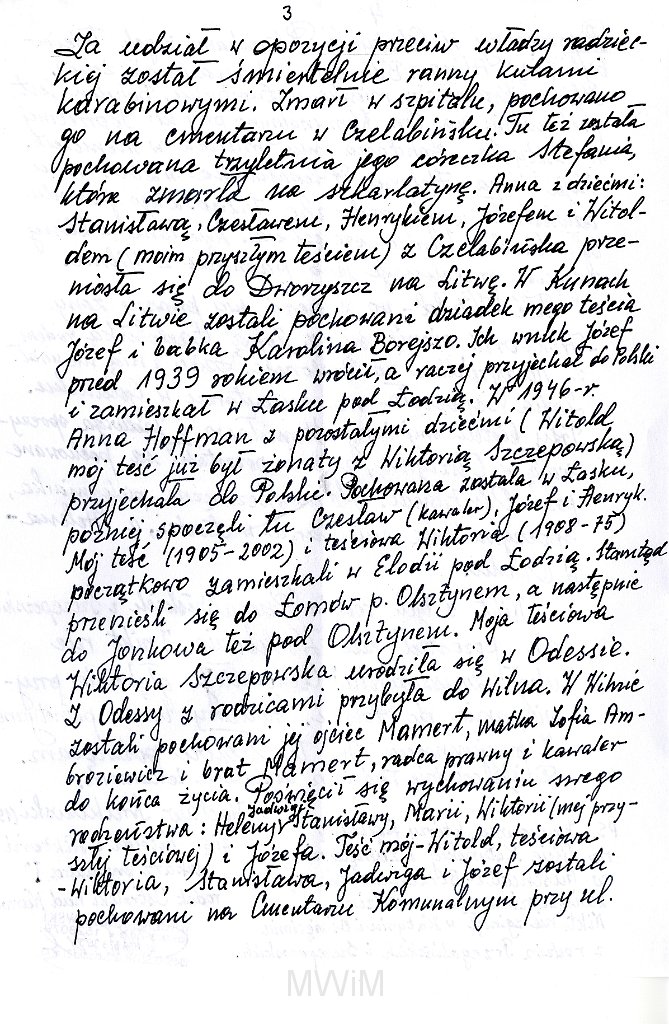 3
Za udział w opozycji przeciw władzy radziec-
kiej został śmiertelnie ranny kulami
karabinowymi. Zmarł w szpitalu, pochowano
go na cmentarzu w Czelabińsku. Tu też została
pochowana trzyletnia jego córeczka Stefania,
która zmarła na szkarlatynę. Anna z dziećmi:
Stanisławą, Czesławem, Henrykiem, Józefem i Witol-
dem (moim przyszłym teściem) z Czelabińska prze-
niosła się do Dworzyszcz na Litwę. W Kunach
na Litwie zostali pochowani dziadek mego teścia
Józef i babka Karolina Borejszo. Ich wnuk Józef
przed 1939 rokiem wrócił, a raczej przyjechał do Polski
i zamieszkał w Łasku pod Łodzią. W 1946-r.
Anna Hoffman z pozostałymi dziećmi (Witold
mój teść już był żonaty z Wiktorią Szczepowską)
przyjechała do Polski. Pochowana została w Łasku,
później spoczęli tu Czesław (kawaler), Józef i Henryk.
Mój teść (1905-2002) i teściowa Wiktoria (1908-75)
początkowo zamieszkali w Elodii pod Łodzią. Stamtąd
przenieśli się do Łomów p. Olsztynem, a następnie
do Jonkowa też pod Olsztynem. Moja teściowa
Wiktoria Szczepowska urodziła się w Odessie.
Z Odessy z rodzicami przybyła do Wilna. W Wilnie
zostali pochowani jej ojciec Mamert, matka Zofia Am-
broziewicz i brat Mamert, radca prawny i kawaler
do końca życia. Poświęcił się wychowaniu swego
rodzeństwa: Heleny, Jadwigi, Stanisławy, Marii, Wiktorii (mej przy-
szłej teściowej) i Józefa. Teść mój-Witold, teściowa
-Wiktoria, Stanisława, Jadwiga i Józef zostali
pochowani na Cmentarzu Komunalnym przy ul.
MWiM